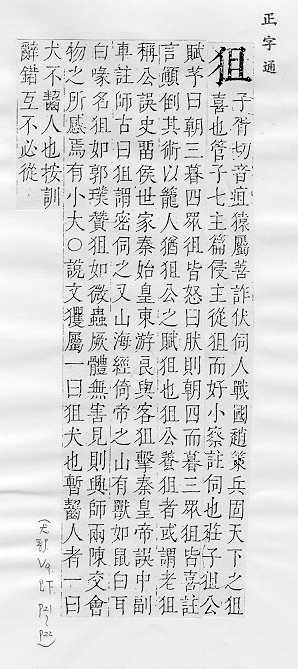 正字通
狙
子胥切音疽猿屬善詐伏伺人戰國趙策兵固天下之狙
喜也管子七主篇侵主從狙而好小察註伺也莊子狙公
賦芧曰朝三暮四眾狙皆怒曰肰則朝四而暮三眾狙皆喜註
言顚倒其術以籠人猶狙公之賦狙也狙公養狙者或謂老狙
稱公誤史畱侯世家秦始皇東游良與客狙擊秦皇帝誤中副
車註師古曰狙謂密伺之又山海經倚帝之山有獸如鼠白耳
白喙名狙如郭璞贊狙如微蟲厥體無害見則興師兩陳交會
物之所感焉有小大○說文玃屬一曰狙犬也暫齧人者一曰
犬不齧人也按訓
辭錯互不必從
(犬部 V9 下 P21~P22)